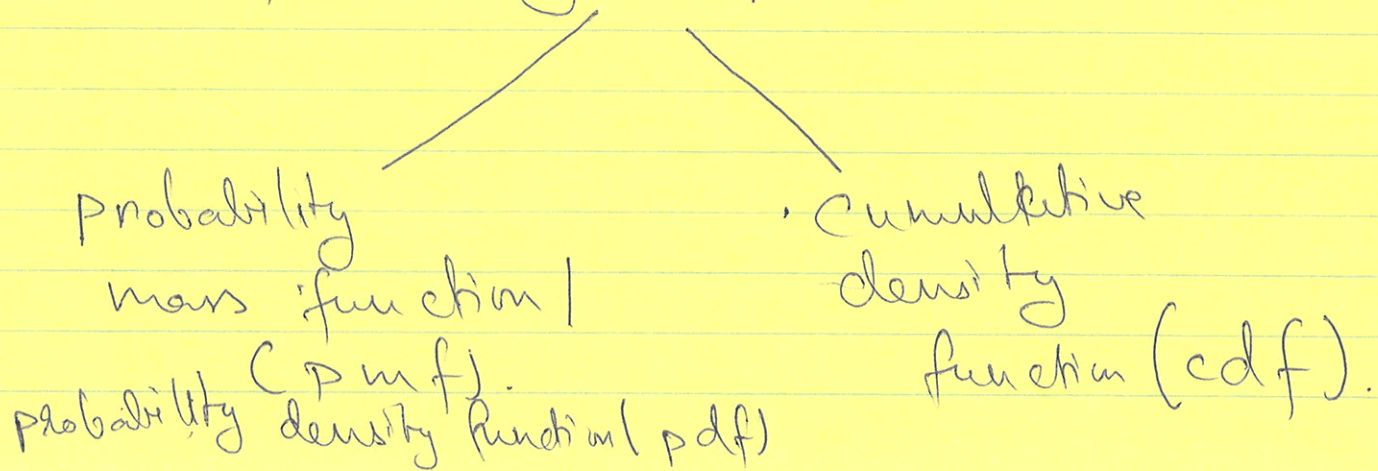 probability
mass function /
(pmf).
probability density function (pdf)
cumulative
density
function (cdf).